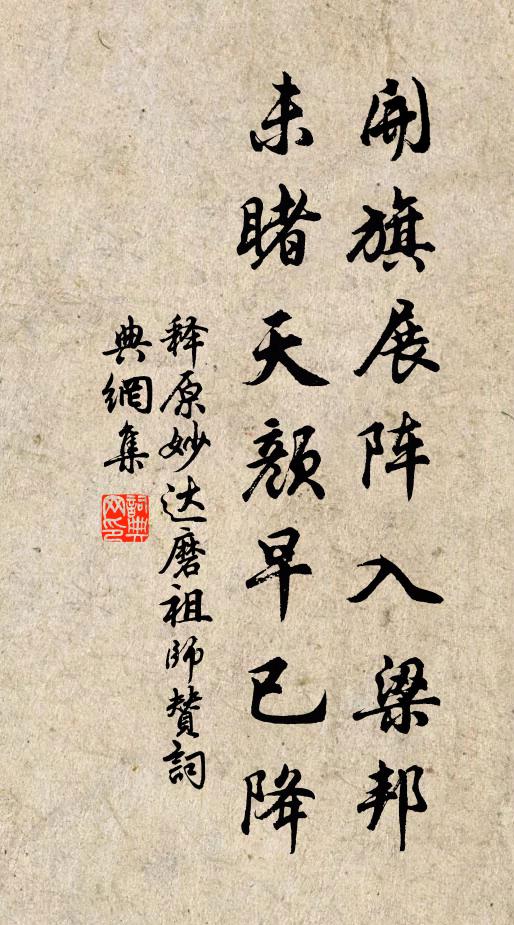 開旗展阵入梁邦
未睹天颜早已降
释原妙达磨祖師贊詞
典網集
詞典
网印